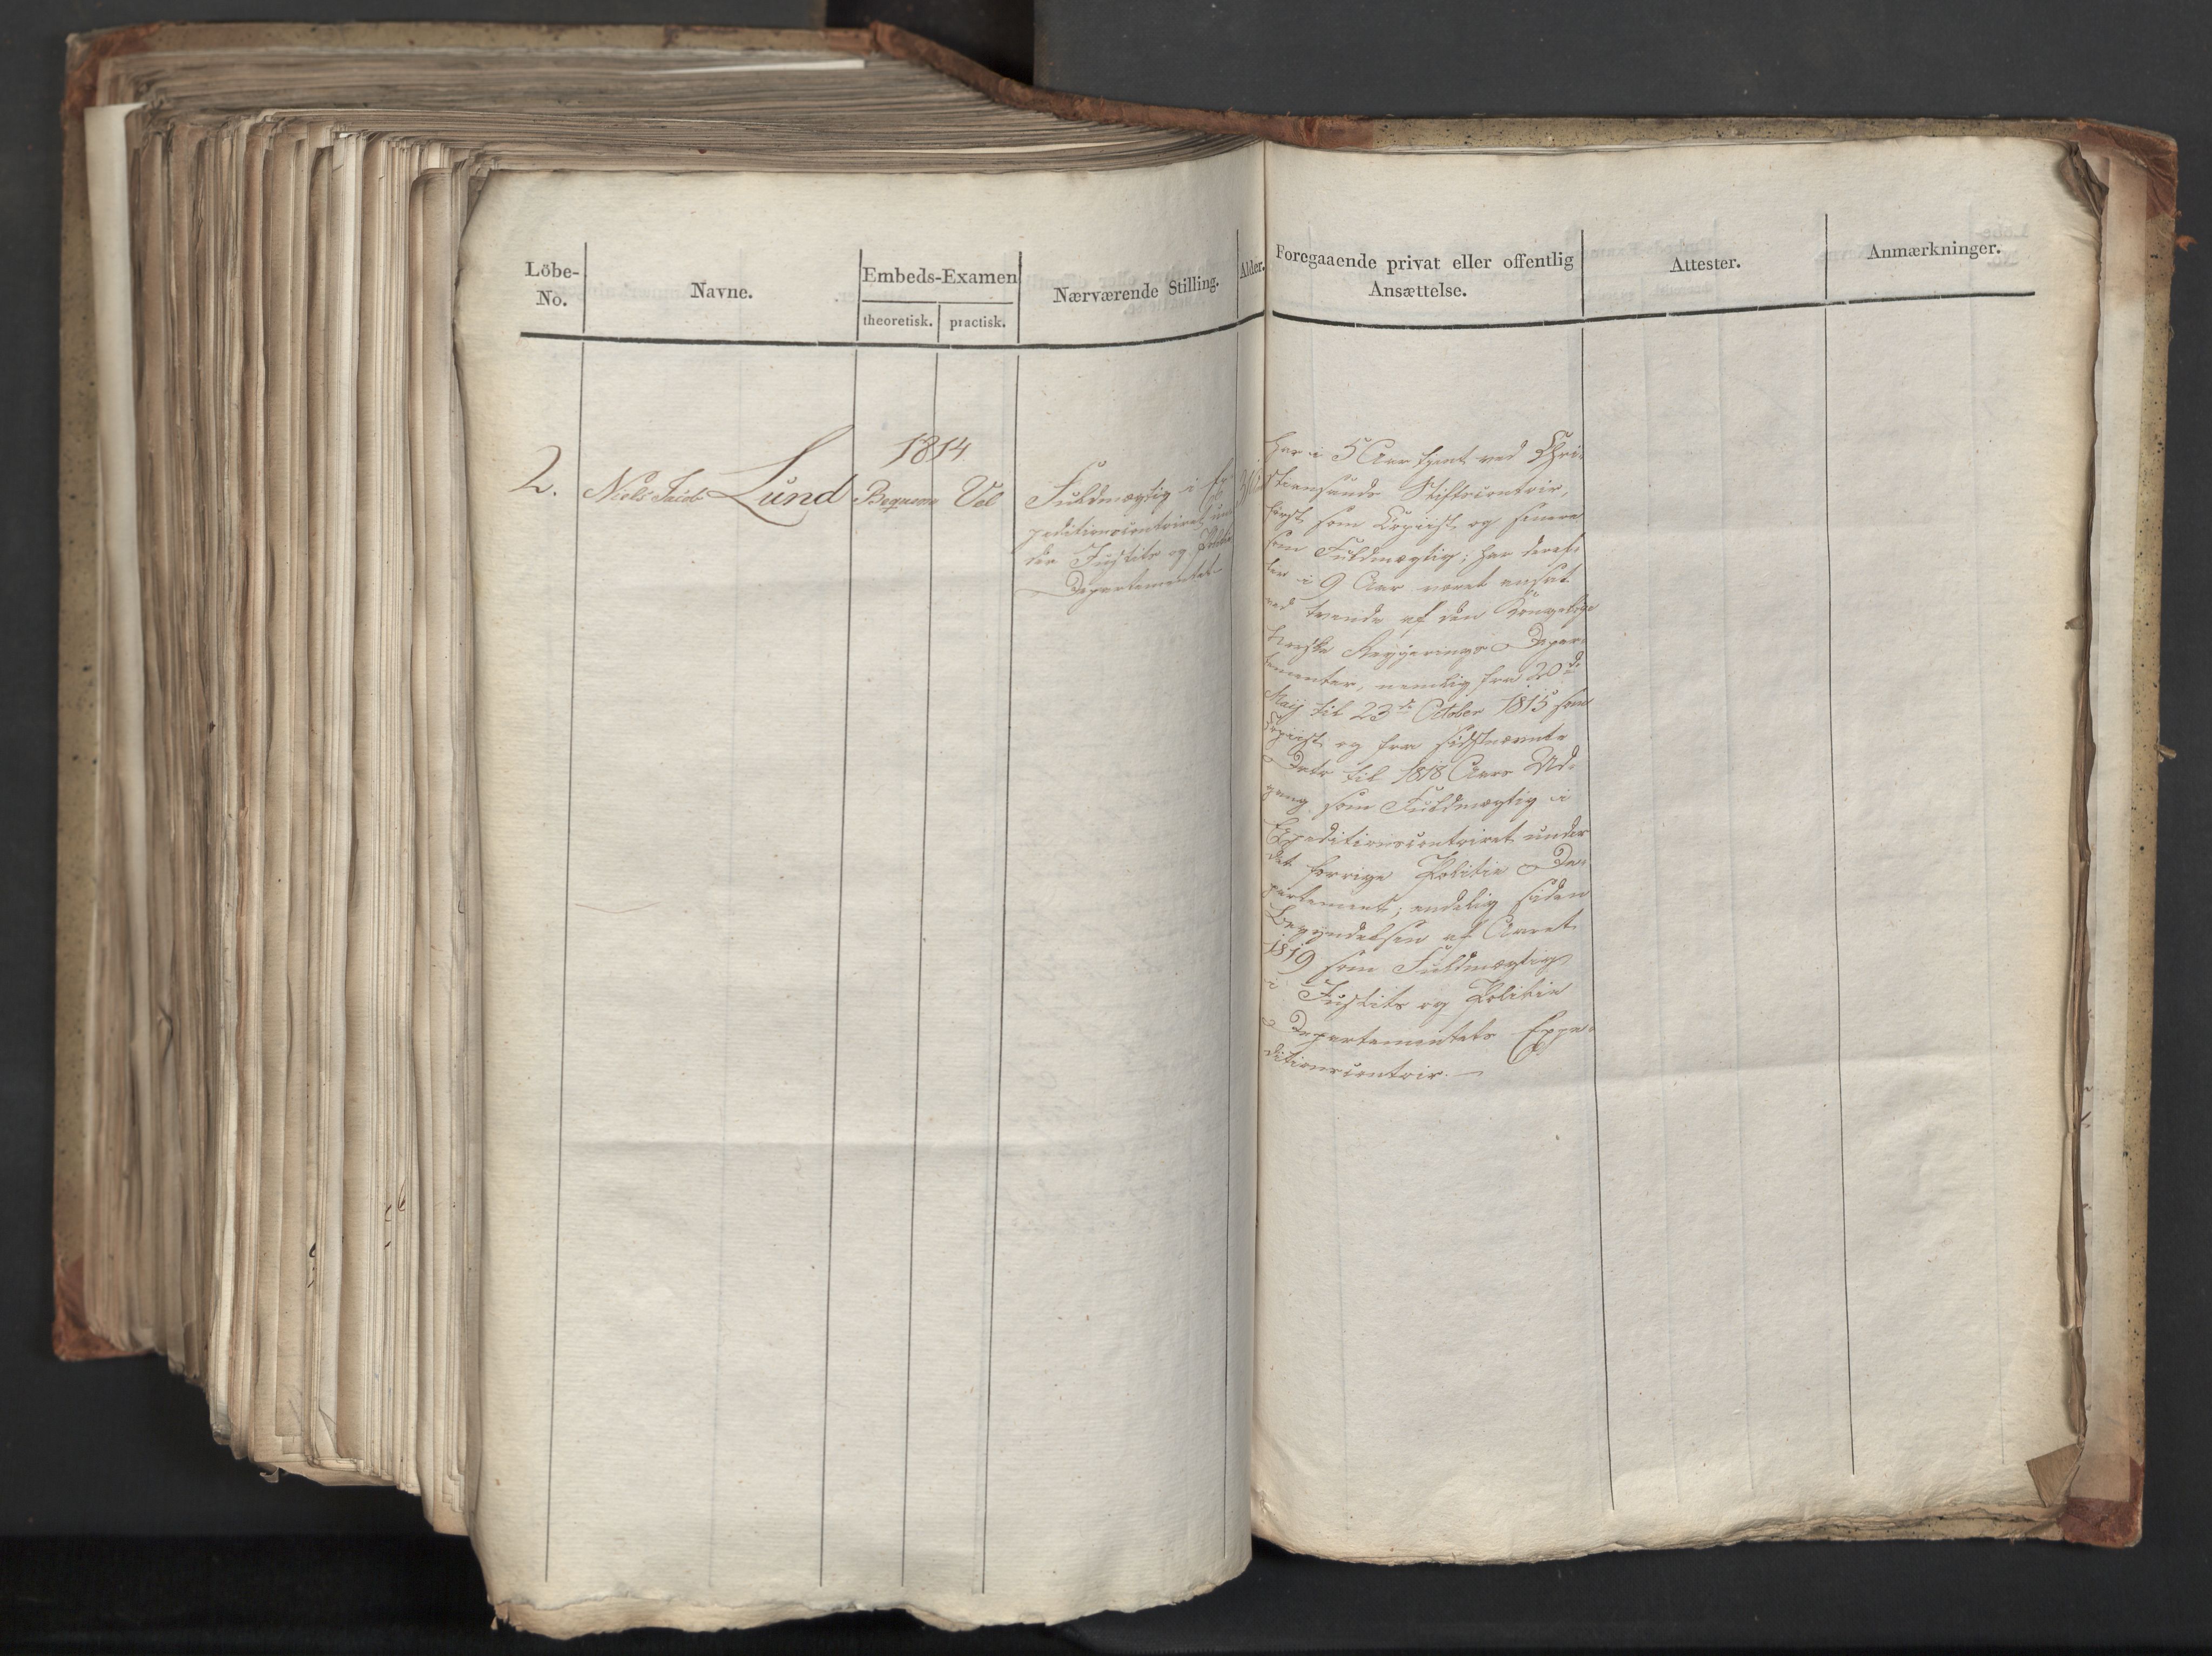 Löbe-
No.
Navne.
Embeds-Examen
theoretisk. practisk.
Nærværende Stilling.
Alder.
Foregaaende privat eller offentlig
Ansættelse.
Attester.
Anmærkninger.
2.
Niels Jacob Lund
1814
Beqvem Vel
Fuldmægtig i Ex-
peditionscontoiret un-
der Justits og Politie
Departementet
Har i 5 Aar tjent ved Chri-
stiansands Stiftscontoir,
først som Copiist og senere
som Fuldmægtig; har deref-
ter i 9 Aar været ansat
ved tvende af den Kongelige
Norske Regjerings Depar-
tementer, nemlig fra 20de
Maij til 23de October 1815 som
Copiist og fra sidstnævnte
Dato til 1818 Aars Ud-
gang som Fuldmægtig i
Expeditionscontoiret under
det forrige Politie De-
partement; endelig siden
Begyndelsen af Aaret
1819 som Fuldmægtig
i Justits og Politie
Departementets Expe-
ditionscontoir. —